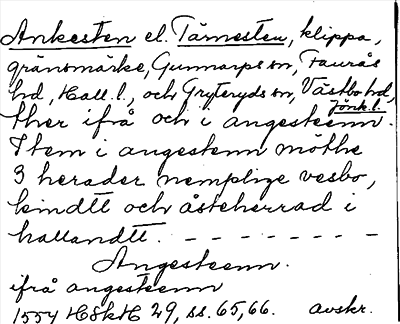 Ankesten el. Tärnesten, klippa,
gränsmärke, Gunnarps sn, Faurås
hd, Hall. l., och Gryteryds sn, Västbo hd,
Jönk. l.
ther ifrå och i angesteenn.
Item i angestenn möthe
3 herader nemplige vesbo,
kindtt och åsteherrad i
hallandtt. - - - - - - - -
Angesteenn.
ifrå angesteenn
1554 HSkH 29, ss. 65, 66. avskr.